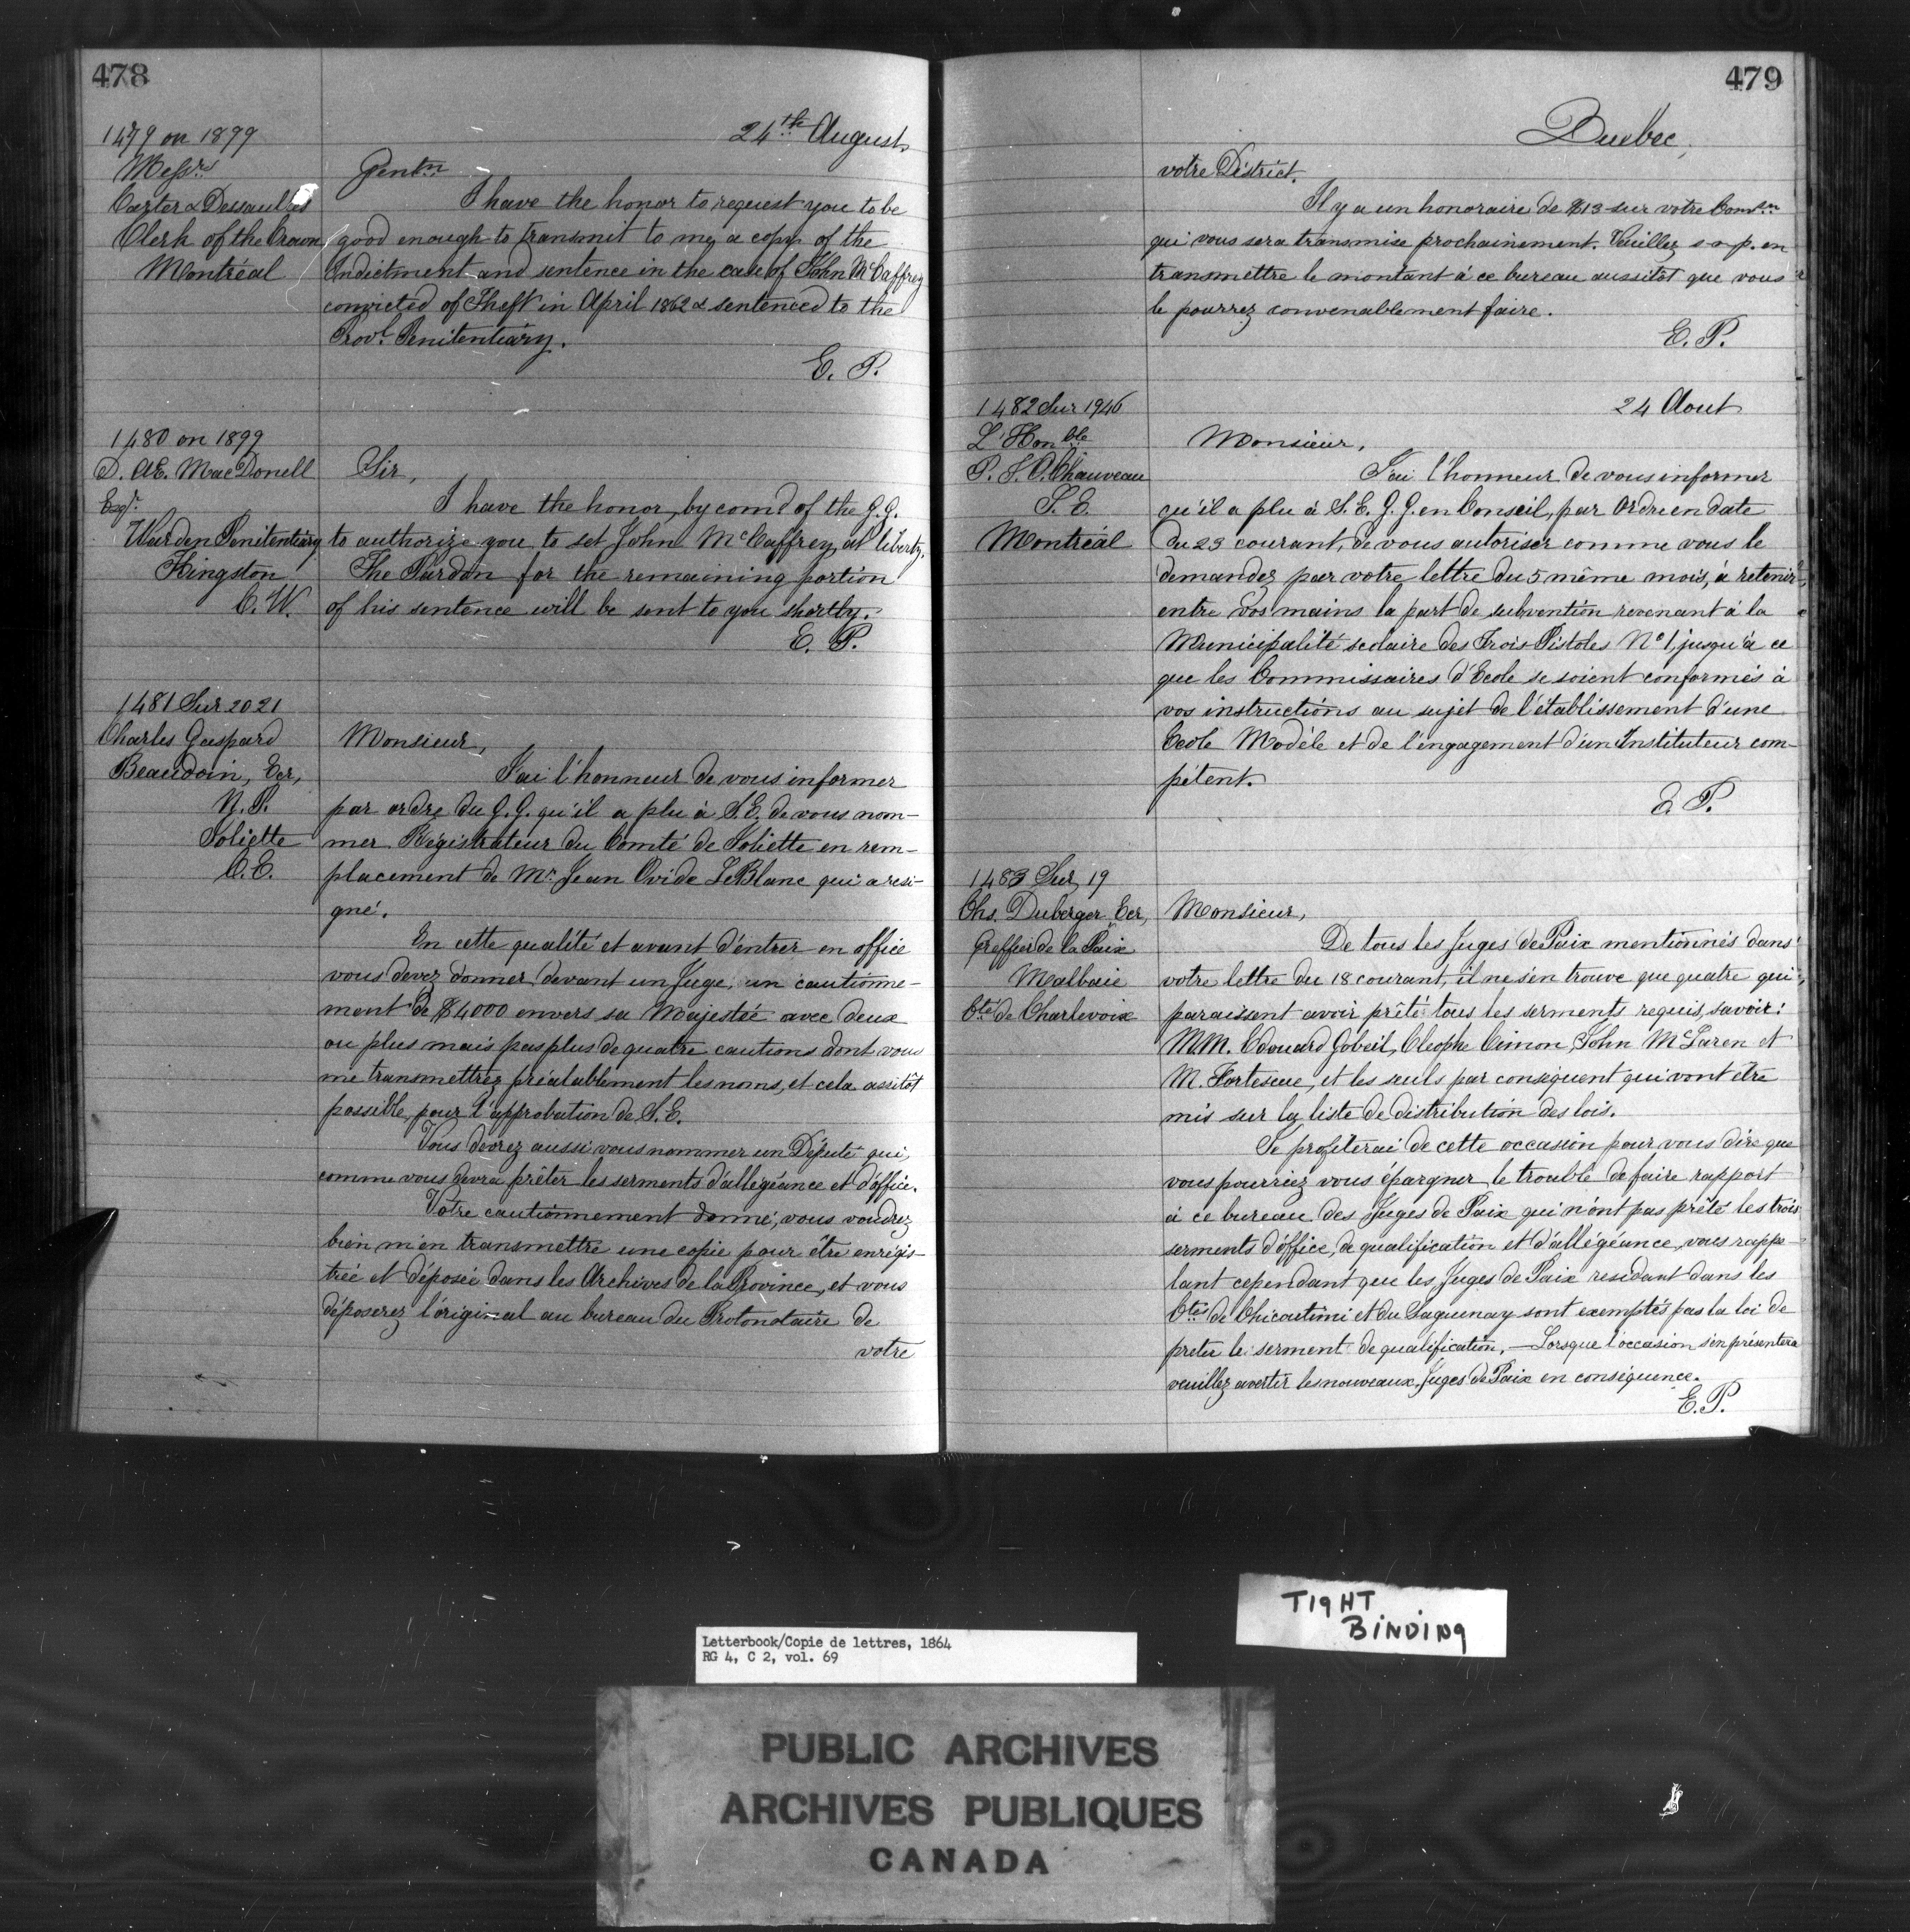 478
24th August
1479 on 1899
Messrs
Carter & Dessaulles
Clerk of the Crown
Montréal
Gentn
I have the honor to request you to be
good enough to transmit to me, a copy of the
Indictment and sentence in the case of John McCaffrey
convicted of Theft in April 1862 & sentenced to the
Provl. Penitentiary.
E. P.
1480 on 1899
D. Æ. MacDonell
Esqr.
Warden Penitentiary
Kingston
C. W.
Sir,
I have the honor, by comd of the G. G.
to authorize you to set John McCaffrey at liberty.
The Pardon for the remaining portion
of his sentence will be sent to you shortly.
E. P.
1481 Sur 2021
Charles Gaspard
Beaudoin, Ecr,
N. P.
Joliette
C. E.
Monsieur,
J'ai l'honneur de vous informer
par ordre du G. G. qu'il a plu à S. E. de vous nom-
mer Régistrateur du Comté de Joliette en rem-
placement de Mr. Jean Ovide LeBlanc qui a resi-
gné.
En cette qualité et avant d'entrer en office
vous devez donner devant un Juge, un cautionne-
ment de $4000 envers sa Majestée avec deux
ou plus mais pas plus de quatre cautions dont vous
me transmettrez préalablement les noms, et cela assitôt
possible, pour l'approbation de S. E.
Vous devrez aussi vous nommer un Député qui,
comme vous devra prêter les serments d'allégéance et d'office.
Votre cautionnement donné, vous voudrez
bien m'en transmettre une copie pour être enrégis-
trée et déposée dans les Archives de la Province, et vous
déposerez l'original au bureau du Protonotaire de
votre
479
Quebec,
votre District.
Il y a un honoraire de $13 sur votre Comsn
qui vous sera transmise prochainement. Veuillez s. v. p. en
transmettre le montant à ce bureau aussitôt que vous
le pourrez convenablement faire.
E. P.
24 Aout
1482 Sur 1946
L'Honble
P. J. O. Chauveau
S. E.
Montréal
Monsieur,
J'ai l'honneur de vous informer
qu'il a plu à S. E. G. G. en Conseil, par Ordre en date
du 23 courant, de vous autoriser comme vous le
demandez par votre lettre du 5 même mois, à retenir
entre vos mains la part de subvention revenant à la
Municipalité scolaire des Trois Pistoles No 1, jusqu'à ce
que les Commissaires d'Ecole se soient conformés à
vos instructions au sujet de l'établissement d'une
Ecole Modèle et de l'engagement d'un Instituteur com-
pétent.
E P.
1483 Sur 19
Chs. Duberger, Ecr,
Greffier de la Paix
Malbaie
Cté de Charlevoix
Monsieur,
De tous les Juges de Paix mentionnés dans
votre lettre du 18 courant, il ne s'en trouve que quatre qui
paraissent avoir prêté tous les serments requis, savoir:
MM. Edouard Gobeil, Cleophe Cimon, John McLaren et
M. Fortescue, et les seuls par conséquent qui vont être
mis sur la liste de distribution des lois.
Je profiterai de cette occasion pour vous dire que
vous pourriez vous épargner le trouble de faire rapport
à ce bureau des Juges de Paix qui n'ont pas prêté les trois
serments d'office, de qualification et d'allégéance, vous rappe-
lant cependant que les Juges de Paix residant dans les
Ctés de Chicoutimi et du Saguenay sont exemptés pas la loi de
preter le serment de qualification. — Lorsque l'occasion s'en présentera
veuillez avertir les nouveaux Juges de Paix en conséquence.
E. P.
TIGHT
BINDING
Letterbook/Copie de lettres, 1864
RG 4, C 2, vol. 69
PUBLIC ARCHIVES
ARCHIVES PUBLIQUES
CANADA